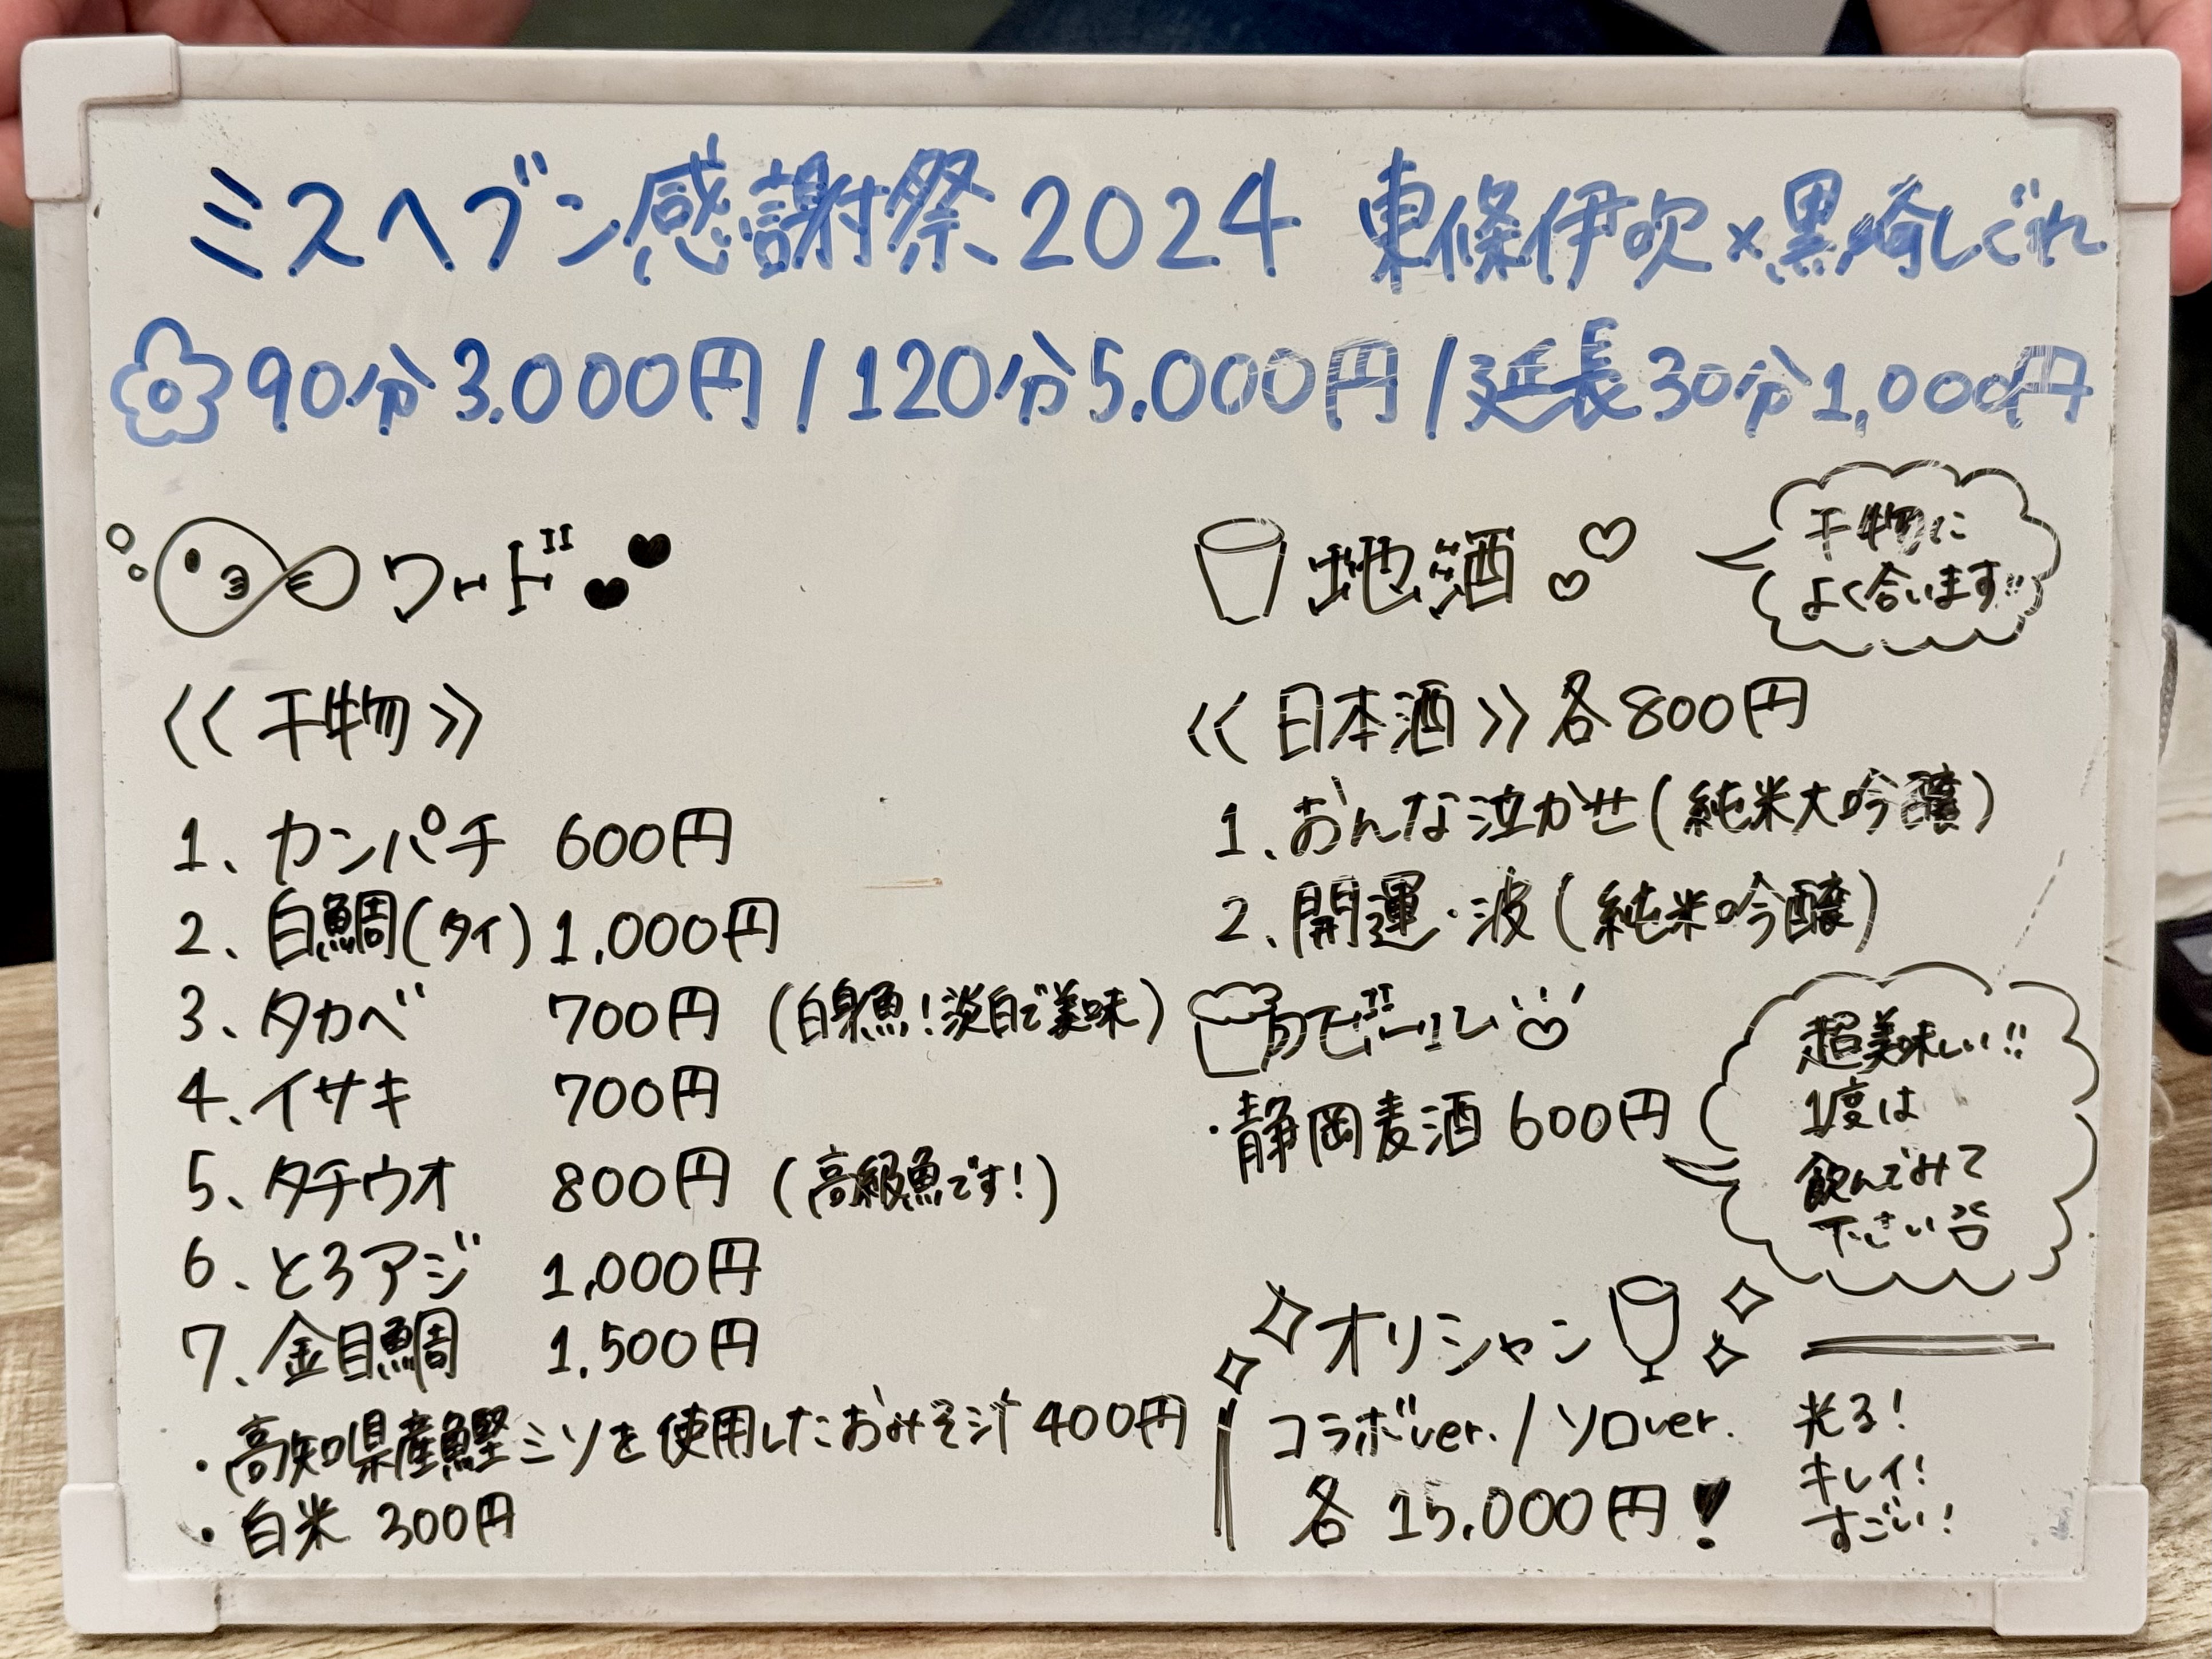 ミスヘブン感謝祭2024 東條伊吹×黒崎しぐれ
90分3.000円/120分5.000円/延長30分1,000円
フード
《干物》
1、カンパチ 600円
2、白鯛(タイ) 1,000円
3、タカベ 700円 (白身魚!淡白で美味)
4、イサキ 700円
5、タチウオ 800円 (高級魚です!)
6、とろアジ 1,000円
7、金目鯛 1,500円
・高知県産鰹ミソを使用したおみそ汁 400円
・白米 300円
地酒
干物に
よく合います!!
《日本酒》各800円
1、おんな泣かせ(純米大吟醸)
2、開運・波(純米吟醸)
ビール
・静岡麦酒 600円
超美味しい!!
1度は
飲んでみて
下さい
オリシャン
コラボver. / ソロver.
各 15,000円!
光る!
キレイ!
すごい!